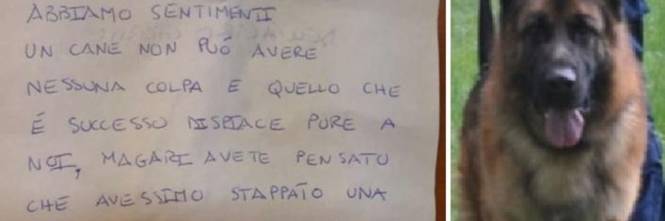 ABBIAMO SENTIMENTI
UN CANE NON PUÓ AVERE
NESSUNA COLPA E QUELLO CHE
É SUCCESSO DISPIACE PURE A
NOI, MAGARI AVETE PENSATO
CHE AVESSIMO STAPPATO UNA